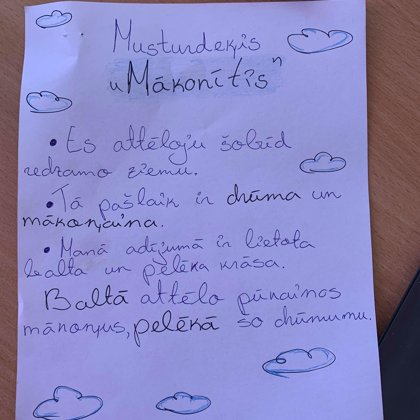 Mustundeķis
"Mākonītis"
• Es attēloju šobrīd
redzamo ziemu.
• Tā pašlaik ir dūma un
mākoņaina.
• Manā adījumā ir lietota
balta un pelēka krāsa.
Baltā attēlo pūnainos
mākoņus, pelēkā šo dūmumu.